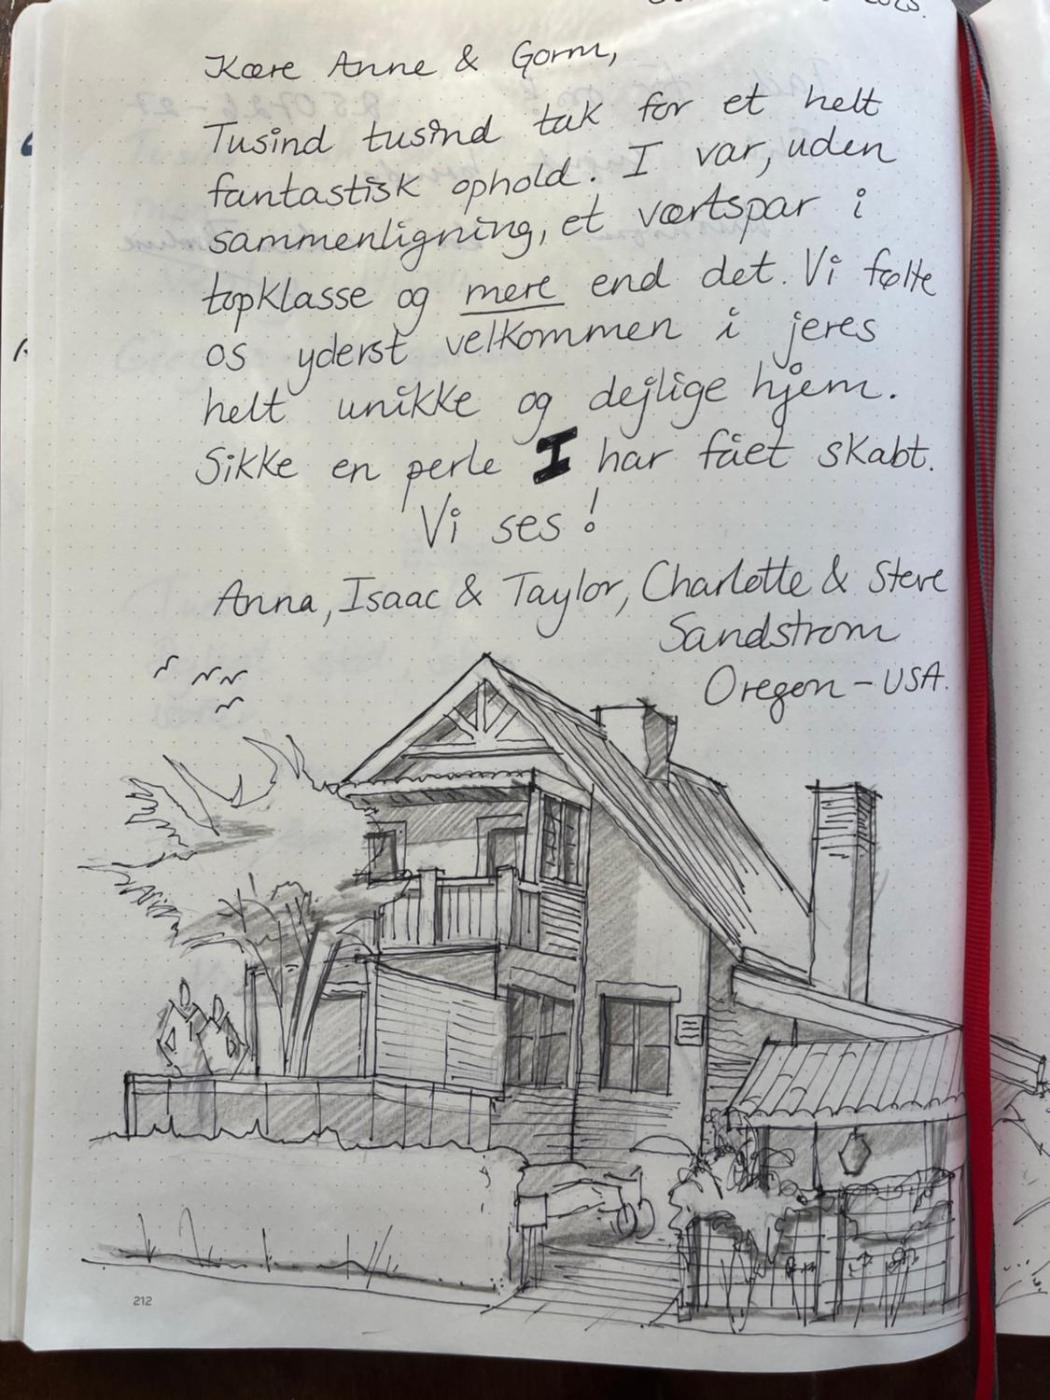 Kære Anne & Gorm,
Tusind tusind tak for et helt
fantastisk ophold. I var, uden
sammenligning, et værtspar i
topklasse og mere end det. Vi følte
os yderst velkommen i jeres
helt unikke og dejlige hjem.
Sikke en perle I har fået skabt.
Vi ses!
Anna, Isaac & Taylor, Charlotte & Steve
Sandstrom
Oregon - USA.
212